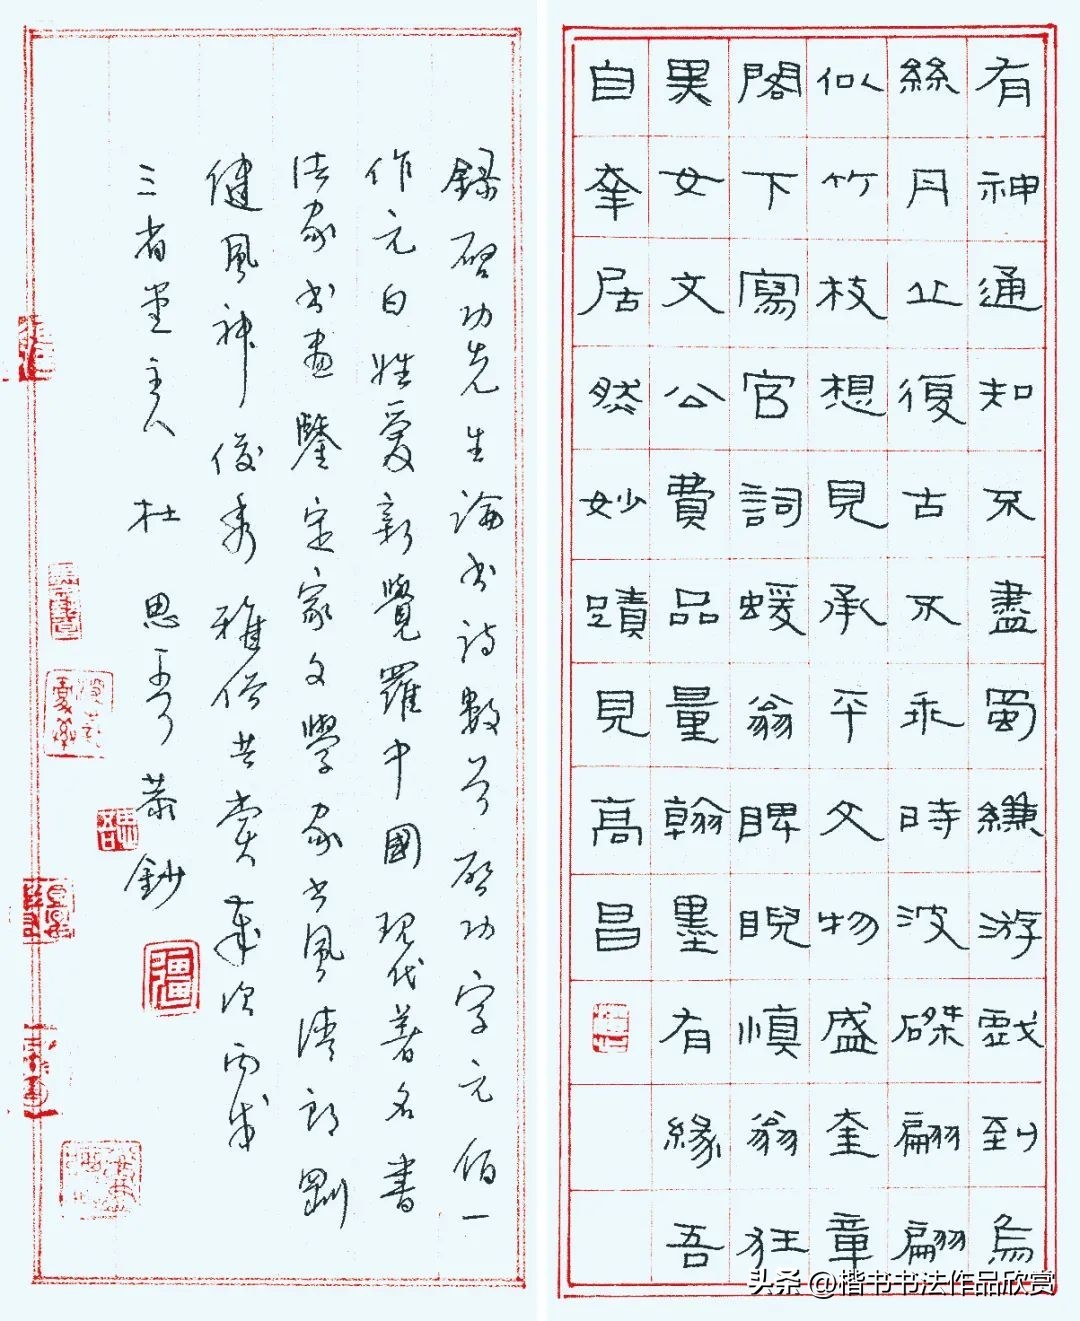 有神通知不盡蜀縑游戲到烏
絲丹止復古不乖時波磔翩翩
似竹枝想見承平文物盛奎章
閣下寫官詞蝯翁睥睨慎翁狂
黑女文公費品量翰墨有緣吾
自幸居然妙蹟見高昌
錄啓功先生論書詩數首啓功字元伯一
作元白姓愛新覺羅中國現代著名書
法家書畫鑒定家文學家書風清朗剛
健風神俊秀雅俗共賞歲次丙戌
三省堂主人 杜思 恭鈔
头条 @楷书书法作品欣赏